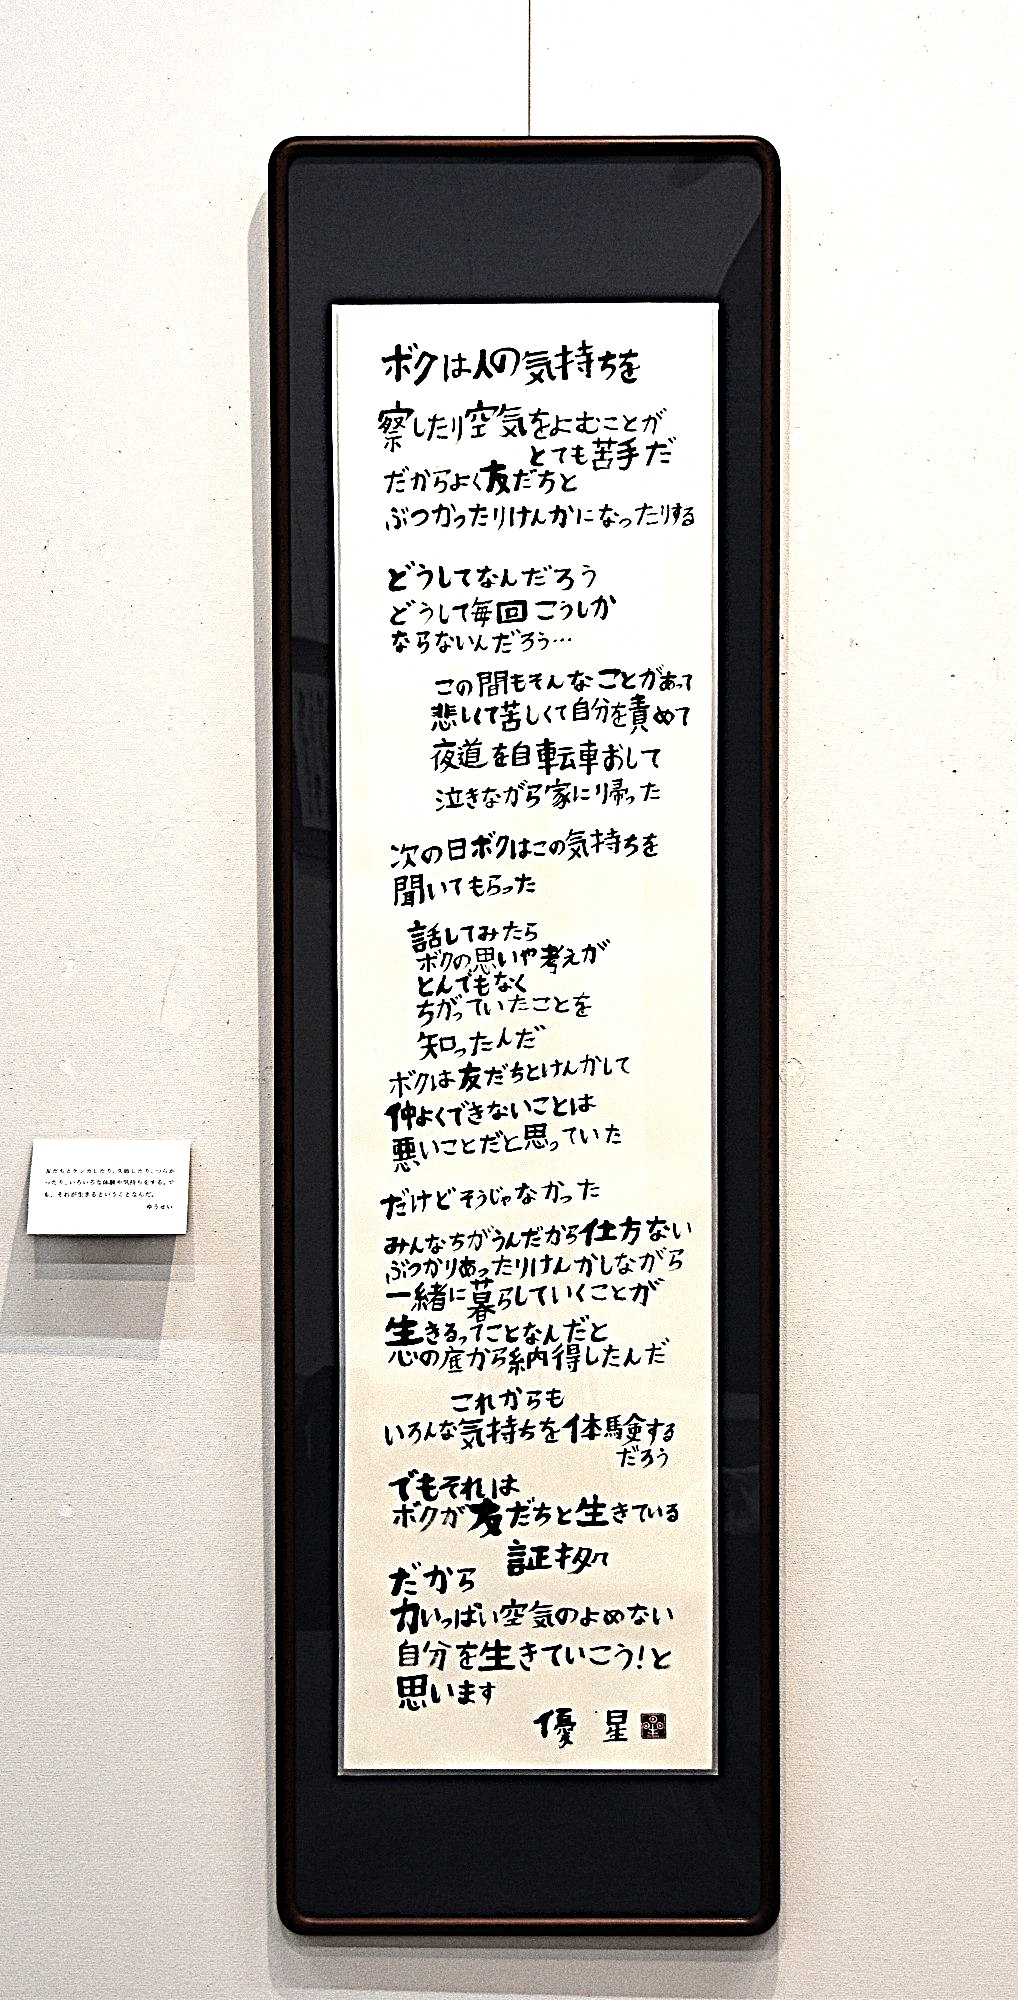 ボクは人の気持ちを
察したり空気をよむことが
とても苦手だ
だからよく友だちと
ぶつかったりけんかになったりする
どうしてなんだろう
どうして毎回こうしか
ならないんだろう…
この間もそんなことがあって
悲しくて苦しくて自分を責めて
夜道を自転車おして
泣きながら家に帰った
次の日ボクはこの気持ちを
聞いてもらった
話してみたら
ボクの思いや考えが
とんでもなく
ちがっていたことを
知ったんだ
ボクは友だちとけんかして
仲よくできないことは
悪いことだと思っていた
だけどそうじゃなかった
みんなちがうんだから仕方ない
ぶつかりあったりけんかしながら
一緒に暮らしていくことが
生きるってことなんだと
心の底から納得したんだ
これからも
いろんな気持ちを体験する
だろう
でもそれは
ボクが友だちと生きている
証拠
だから
力いっぱい空気のよめない
自分を生きていこう!と
思います
優星
友だちとケンカしたり、失敗したり、つらか
ったり、いろいろな体験や気持ちをする。で
も、それが生きるということなんだ。
ゆうせい